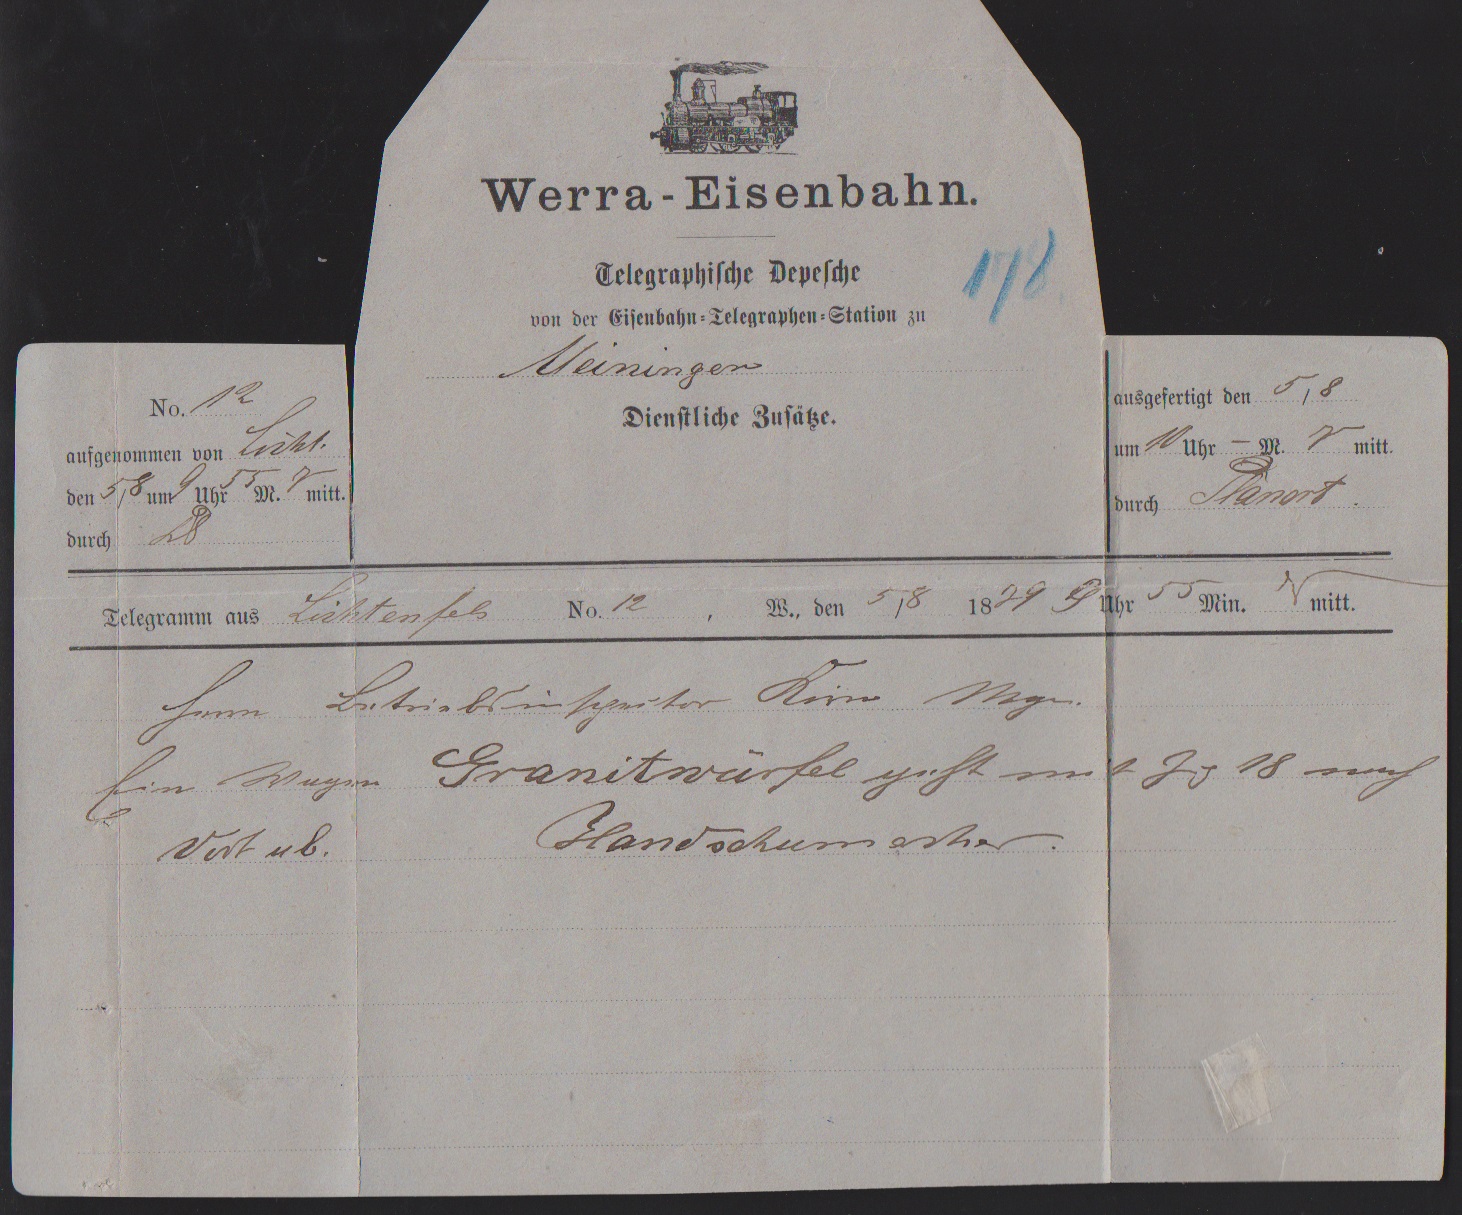 Werra-Eisenbahn.
Telegraphische Depesche
178
von der Eisenbahn-Telegraphen-Station zu
Meiningen
Dienstliche Zusätze.
No. 12
aufgenommen von Licht.
den 5/8 um 9 Uhr 55 M. V mitt.
durch
ausgefertigt den 5/8
um 10 Uhr – M. V mitt.
durch
Telegramm aus Lichtenfels No. 12, W., den 5/8 1879 9 Uhr 55 Min. V mitt.
Herrn Betriebsinspector Mgn.
Ein Wagen Granitwürfel geht mit Zug 18 nach
dort ab. Handschumacher.